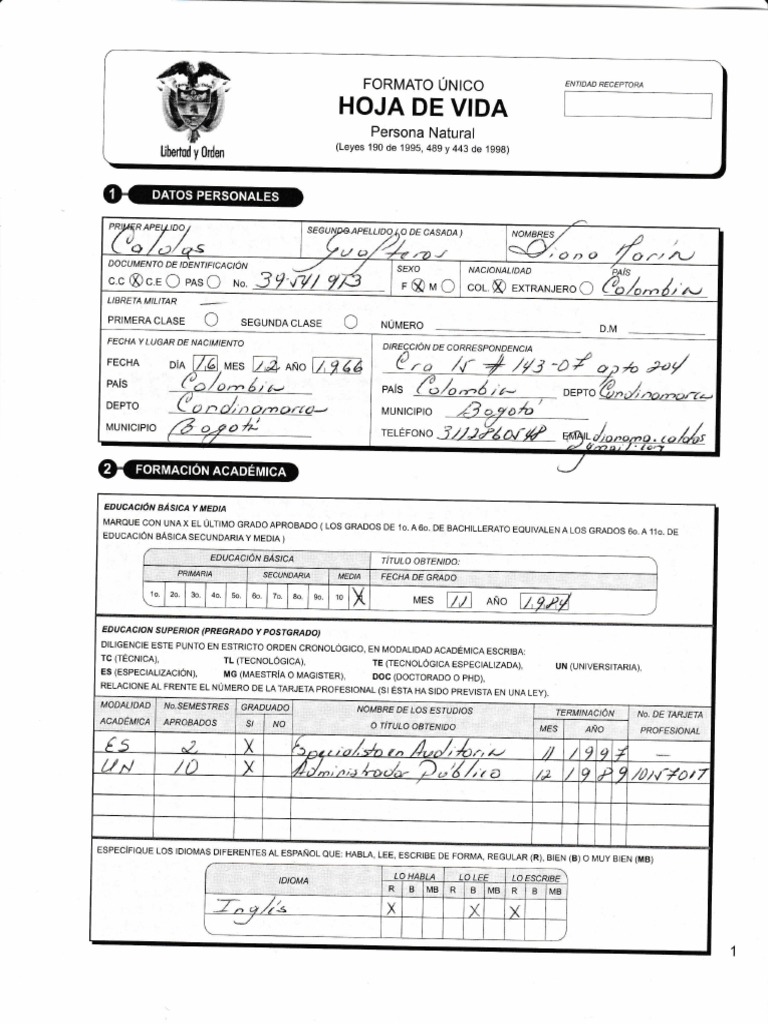 Libertad y Orden
FORMATO ÚNICO
HOJA DE VIDA
Persona Natural
(Leyes 190 de 1995, 489 y 443 de 1998)
ENTIDAD RECEPTORA
1 DATOS PERSONALES
PRIMER APELLIDO SEGUNDO APELLIDO ( O DE CASADA ) NOMBRES
Caldas Gualteros Diana Marín
DOCUMENTO DE IDENTIFICACIÓN SEXO NACIONALIDAD PAÍS
C.C X C.E PAS No. 39.541.973 F X M COL. X EXTRANJERO Colombia
LIBRETA MILITAR
PRIMERA CLASE SEGUNDA CLASE NÚMERO D.M
FECHA Y LUGAR DE NACIMIENTO DIRECCIÓN DE CORRESPONDENCIA
FECHA DÍA 16 MES 12 AÑO 1966 Cra 15 # 143-07 apto 204
PAÍS Colombia PAÍS Colombia DEPTO Condinamarca
DEPTO Condinamarca MUNICIPIO Bogotá
MUNICIPIO Bogotá TELÉFONO 3112860548 EMAIL dianama.caldas
gmail.com
2 FORMACIÓN ACADÉMICA
EDUCACIÓN BÁSICA Y MEDIA
MARQUE CON UNA X EL ÚLTIMO GRADO APROBADO ( LOS GRADOS DE 1o. A 6o. DE BACHILLERATO EQUIVALEN A LOS GRADOS 6o. A 11o. DE
EDUCACIÓN BÁSICA SECUNDARIA Y MEDIA )
EDUCACIÓN BÁSICA TÍTULO OBTENIDO:
PRIMARIA SECUNDARIA MEDIA FECHA DE GRADO
1o. 2o. 3o. 4o. 5o. 6o. 7o. 8o. 9o. 10 X MES 11 AÑO 1984
EDUCACION SUPERIOR (PREGRADO Y POSTGRADO)
DILIGENCIE ESTE PUNTO EN ESTRICTO ORDEN CRONOLÓGICO, EN MODALIDAD ACADÉMICA ESCRIBA:
TC (TÉCNICA), TL (TECNOLÓGICA), TE (TECNOLÓGICA ESPECIALIZADA), UN (UNIVERSITARIA),
ES (ESPECIALIZACIÓN), MG (MAESTRÍA O MAGISTER), DOC (DOCTORADO O PHD),
RELACIONE AL FRENTE EL NÚMERO DE LA TARJETA PROFESIONAL (SI ÉSTA HA SIDO PREVISTA EN UNA LEY).
MODALIDAD No.SEMESTRES GRADUADO NOMBRE DE LOS ESTUDIOS TERMINACIÓN No. DE TARJETA
ACADÉMICA APROBADOS SI NO O TÍTULO OBTENIDO MES AÑO PROFESIONAL
ES 2 X Especialista en Auditoria 11 1997 —
UN 10 X Administrador Público 12 1989
ESPECÍFIQUE LOS IDIOMAS DIFERENTES AL ESPAÑOL QUE: HABLA, LEE, ESCRIBE DE FORMA, REGULAR (R), BIEN (B) O MUY BIEN (MB)
IDIOMA LO HABLA LO LEE LO ESCRIBE
R B MB R B MB R B MB
Inglés X X X
1